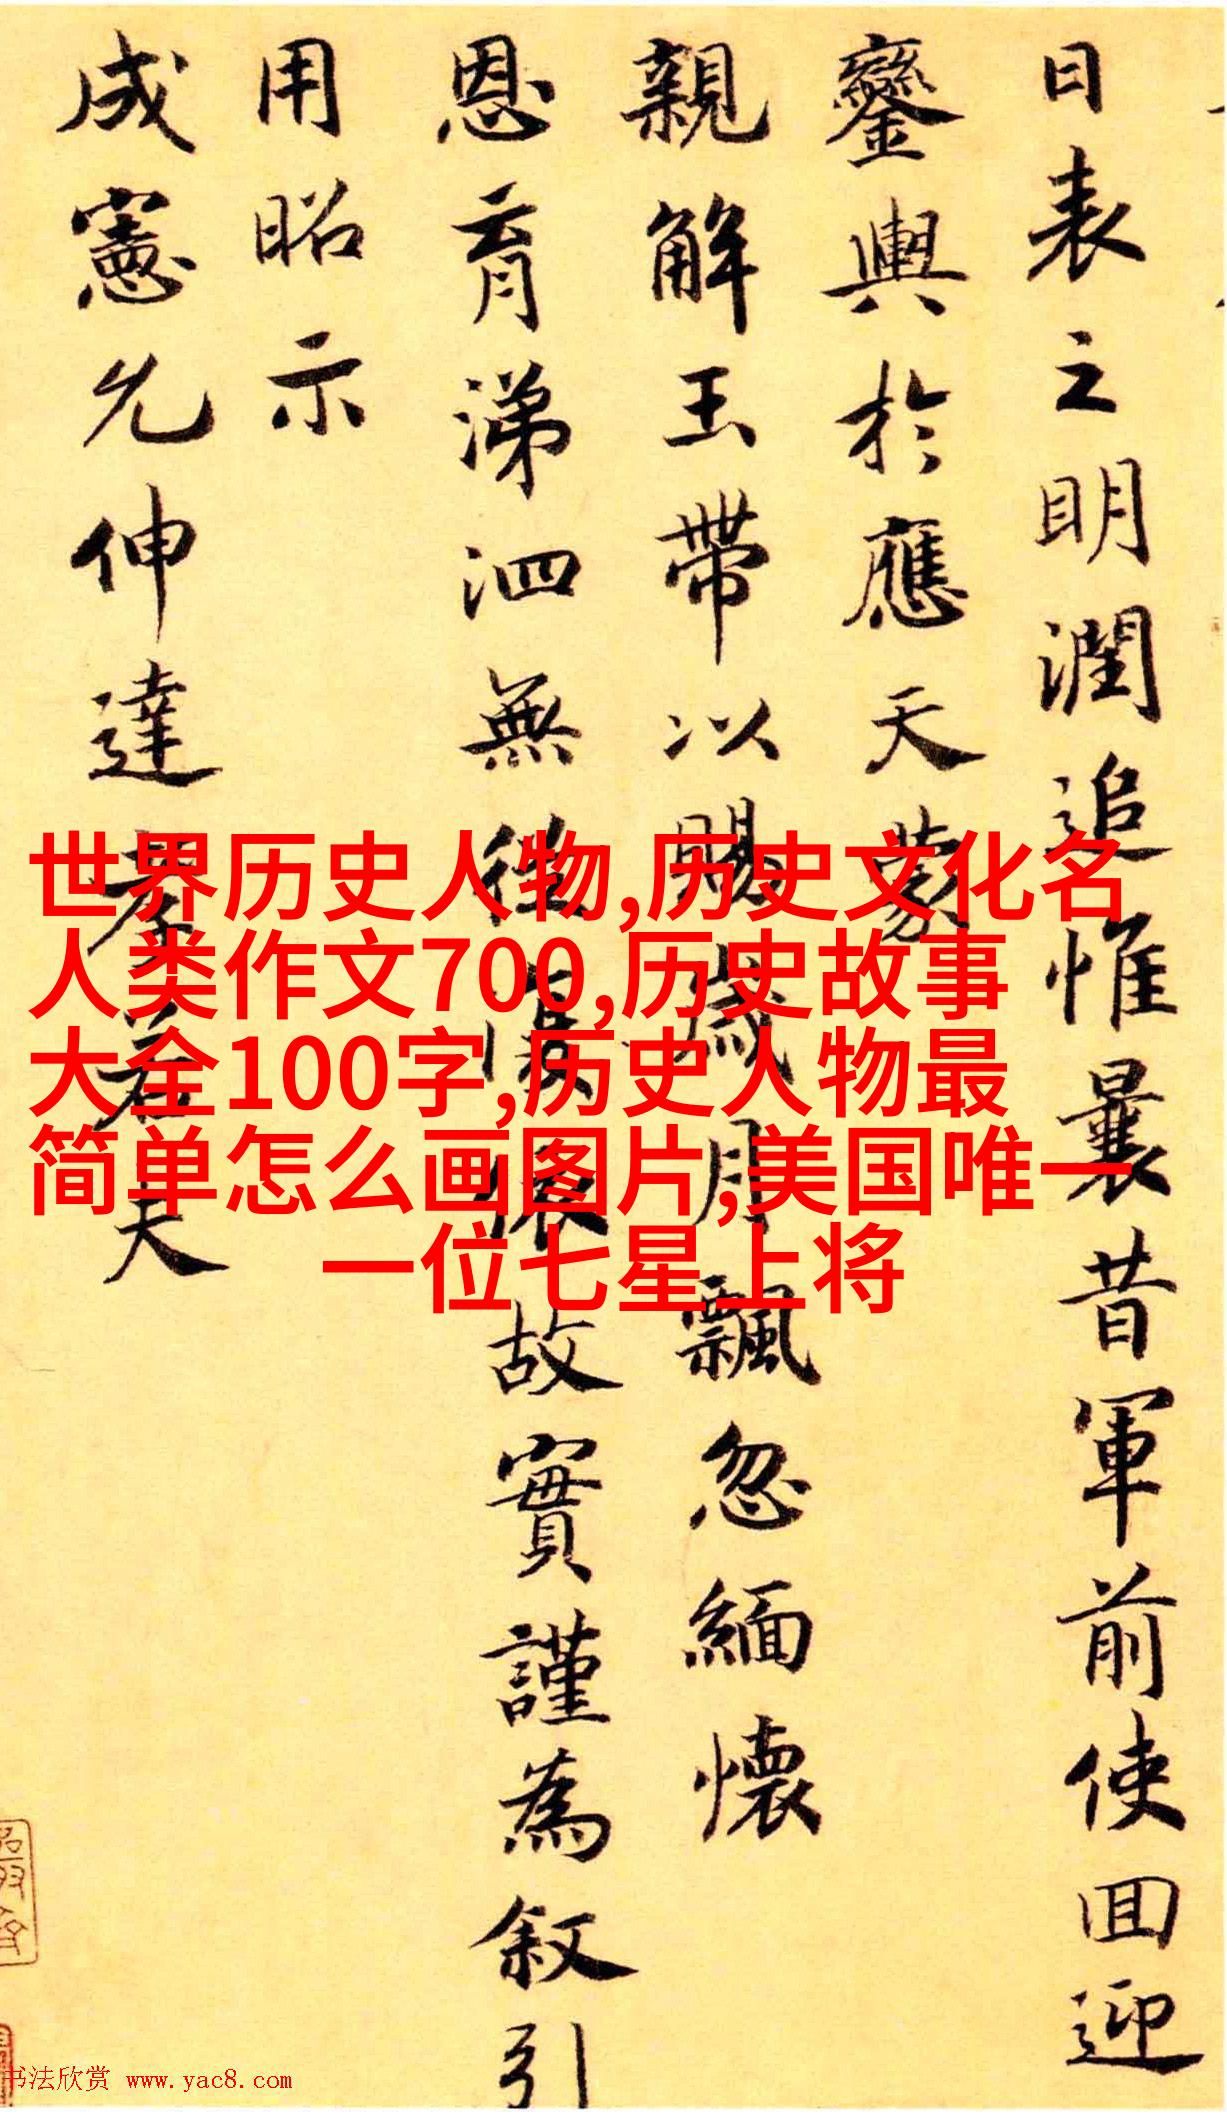 日表之明潤追惟曩昔軍前使囬迎
鑾輿於應天蒙
親解玉帶以賜歲月飄忽緬懷
恩育涕泗無故實謹為叙引
用昭示
成憲允伸達孝若夫
世界历史人物,历史文化名
人类作文700,历史故事
大全100字,历史人物最
简单怎么画图片,美国唯一
一位七星上将
书法欣赏 www.yac8.com